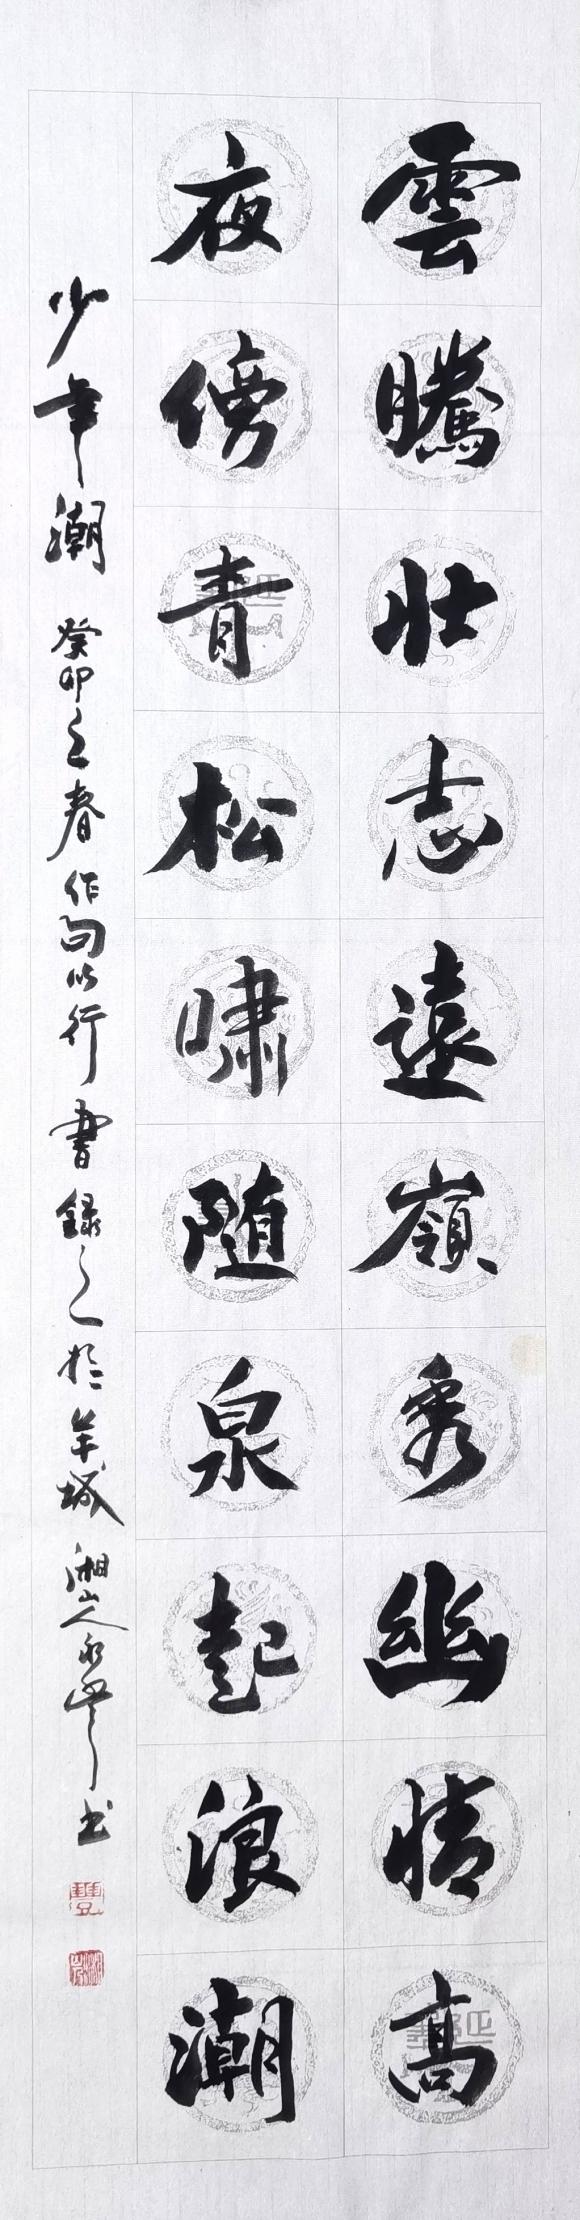 雲騰壯志遠嶺秀幽情高
夜傍青松嘯随泉起浪潮
少年潮 癸卯之春作句以行書録之於羊城 湘山人永豐书